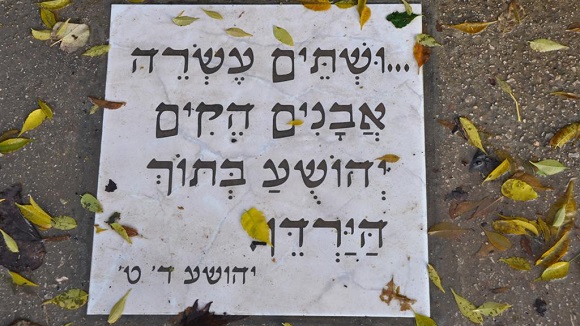 ...וּשְׁתֵּים עֶשְׂרֵה
אֲבָנִים הֵקִים
יְהוֹשֻׁעַ בְּתוֹךְ
הַיַּרְדֵּן
יהושע ד׳ ט׳